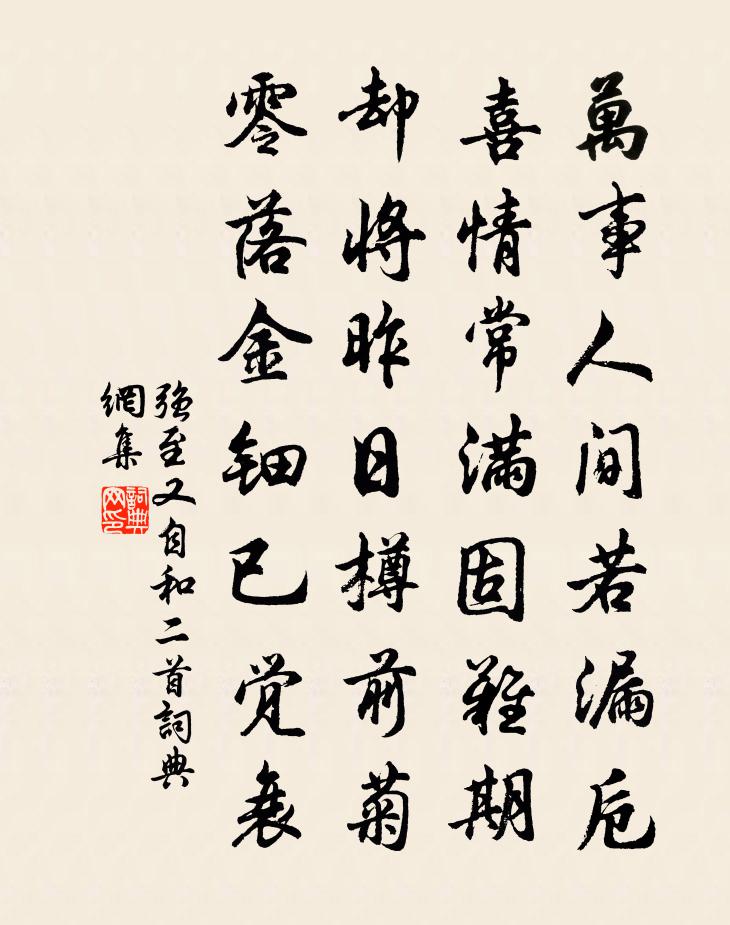 萬事人間若漏卮
喜情常滿固難期
却將昨日樽前菊
零落金鈿已覺衰
強至又自和二首詞典
網集
詞典網印